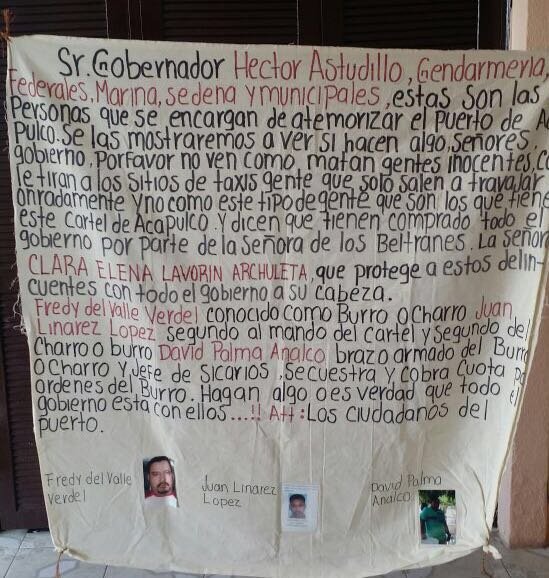 Sr. Gobernador Hector Astudillo, Gendarmerla,
Federales, Marina, sedena y municipales, estas son las
Personas que se encargan de atemorizar el puerto de Aca
pulco. Se las mostraremos a ver si hacen algo, señores,
gobierno, porfavor no ven como, matan gentes inocentes, co
le tiran a los sitios de taxis gente que solo salen a travajar
onradamente y no como este tipo de gente que son los que tiene
este Cartel de Acapulco. Y dicen que tienen comprado todo el
gobierno por parte de la Señora de los Beltranes. La señor
CLARA ELENA LAVORIN ARCHULETA, que protege a estos delin-
cuentes con todo el gobierno a su cabeza.
Fredy del Valle Verdel conocido como Burro o Charro Juan
Linarez Lopez segundo al mando del Cartel y Segundo del
Charro o burro David Palma Analco brazo armado del Burro
O Charro y Jefe de Sicarios, Secuestra y cobra cuota po
ordenes del Burro. Hagan algo o es verdad que todo el
gobierno esta con ellos...!! Att: Los ciudadanos del
puerto.
Fredy del Valle
Verdel
Juan Linarez
Lopez
David Palma
Analco